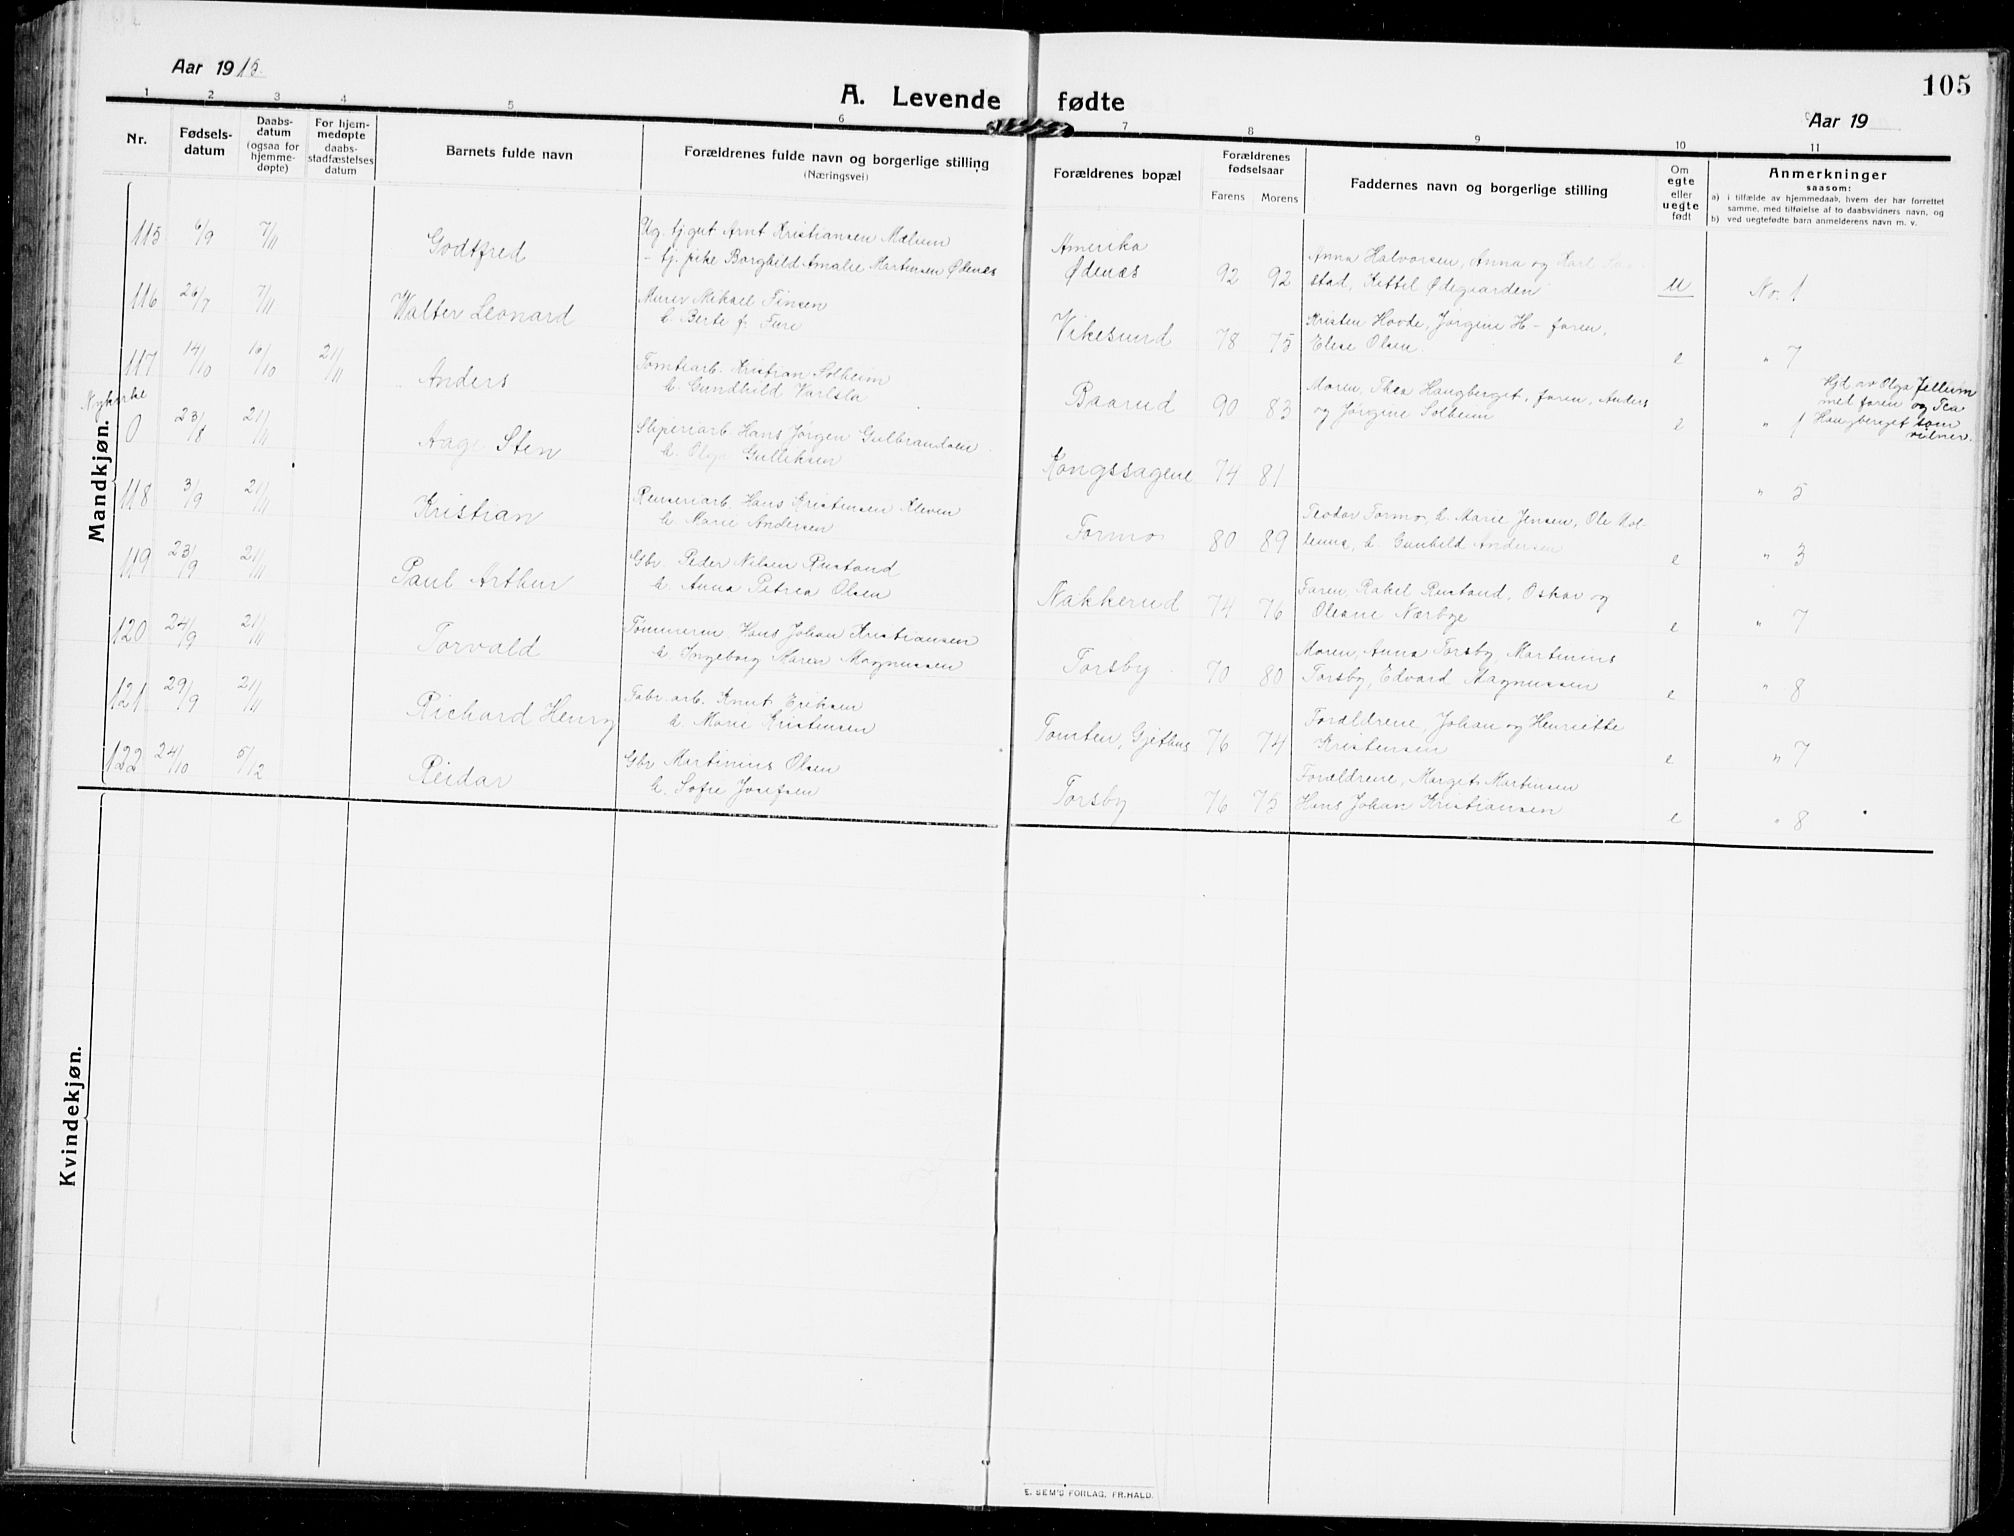 Aar 1915.
A. Levende fødte
105
Aar 19
1 2 3 4 5 6 7 8 9 10 11
Nr.
Fødsels-
datum
Daabs-
datum
(ogsaa for
hjemme-
døpte)
For hjem-
medøpte
daabs-
stadfæstelses
datum
Barnets fulde navn
Forældrenes fulde navn og borgerlige stilling
(Næringsvei)
Forældrenes bopæl
Forældrenes
fødselsaar
Farens Morens
Faddernes navn og borgerlige stilling
Om
egte
eller
uegte
født
Anmerkninger
saasom:
a) i tilfælde av hjemmedaab, hvem der har forrettet
samme, med tilføielse af to daabsvidners navn, og
b) ved uegtefødte barn anmelderens navn m. v.
Mandkjøn.
115 6/9 7/11 Godtfred
Ug. tj. gut Arnt Kristiansen Mælum
- tj. pike Borghild Amalie Martinsen Ødenes
Amerika
Ødenæs 92 92
Anna Halvorsen, Anna og Karl
stad, Kittel Ødegaarden
u No. 1
116 26/7 7/11 Walter Leonard
Murer Mikael Finsen
h. Berte f. Fure
Vikesund 78 75
Kristen Hovde, Jørgine H- faren,
Elise Olsen.
e " 7
117 14/10 16/10 21/11 Anders
Tomtearb. Kristian Solheim
h. Gundhild Varlsla
Baarud 90 83
Moren, Thea Haugberget, faren, Anders
og Jørgine Solheim
e " 1
Hjd av Olga Jelleim
med faren og Tea
Haugberget som
vidner.
Nykirke
0 23/8 21/11 Aage Sten
Sliperiarb. Hans Jørgen Gulbrandsen
h. Olga Gulliksen
Kongssagene 74 81
" 5
118 3/9 21/11 Kristian
Renseriarb. Hans Kristensen Kleven
h. Marie Andersen
Formo 80 89
Teodor Formo, h. Marie Jensen, Ole Mol
lerud, h. Gunhild Andersen
e " 3
119 23/9 21/11 Paul Arthur
Gbr. Peder Nilsen Rustand
h. Anna Petrea Olsen
Nakkerud 74 76
Faren, Rakel Rustand, Oskar og
Olesne Nærbye
e " 7
120 24/9 21/11 Torvald
Tømmerm. Hans Johan Kristiansen
h. Ingeborg Maren Magnussen
Torsby 70 80
Moren, Anna Torsby, Martinius
Torsby, Edvard Magnussen
e " 8
121 29/9 21/11 Richard Henry
Fabr. arb. Knut Eriksen
h. Marie Kristensen
Tomten, Gjethus 76 74
Forældrene, Johan og Henriette
Kristensen
e " 7
122 24/10 5/12 Reidar
Gbr. Martinius Olsen
h. Sofie Josefsen
Torsby 76 75
Forældrene, Marget Martinsen
Hans Johan Kristiansen
e " 8
Kvindekjøn.
E. SEM'S FORLAG, FR.HALD.